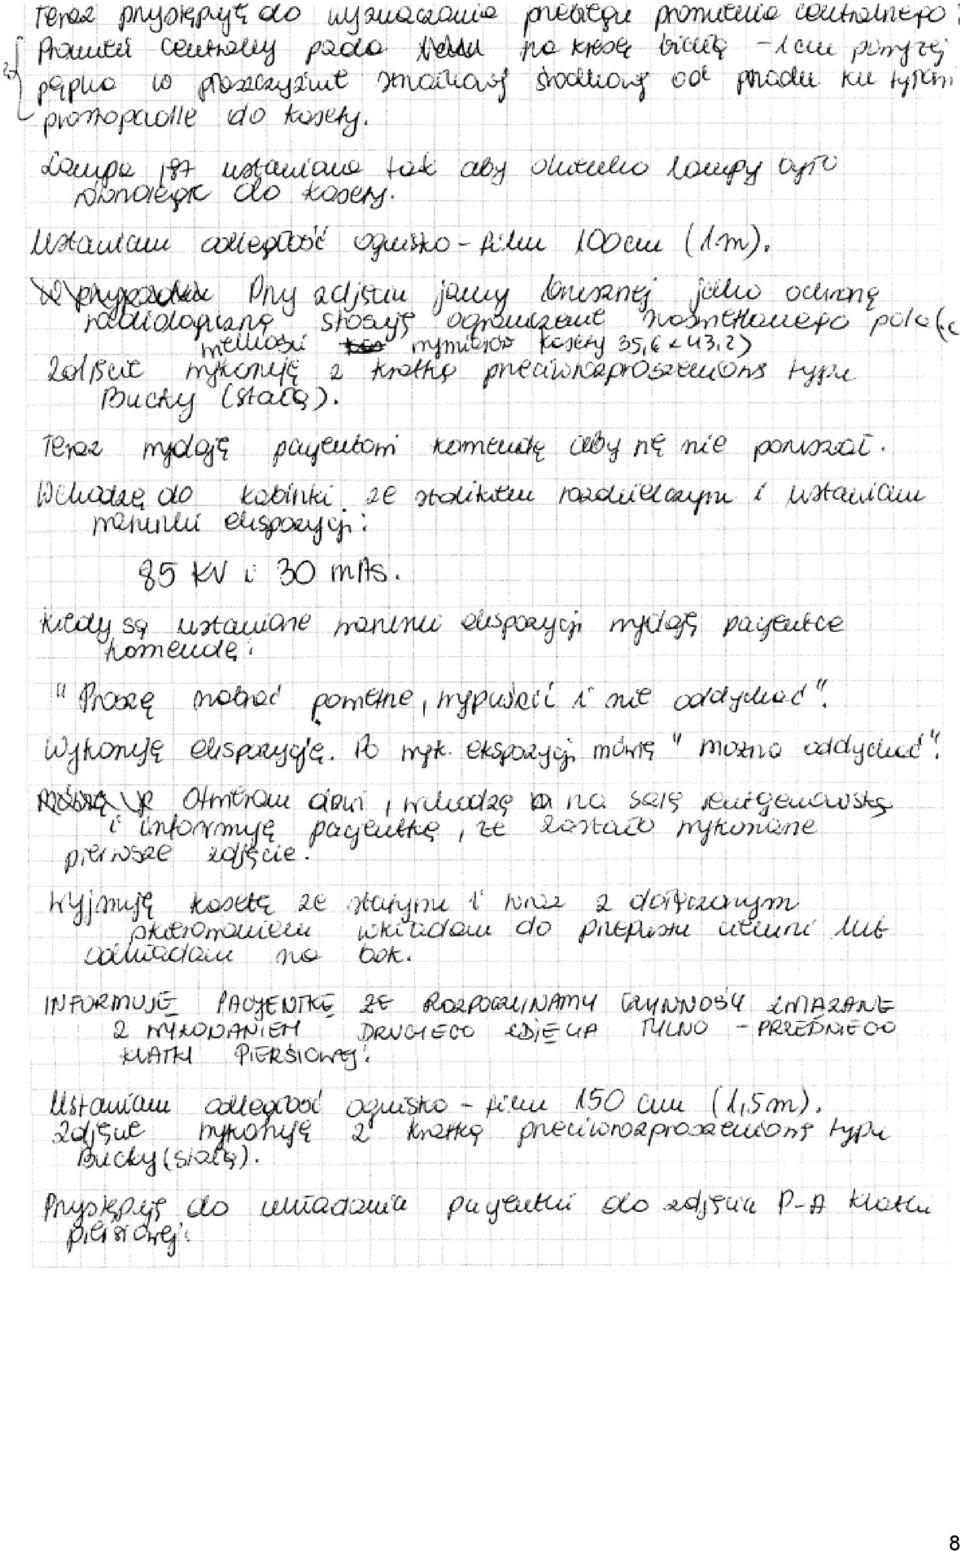 Teraz przystępuję do wyznaczania przebiegu promienia centralnego:
Promień centralny pada na kresę białą ~1cm powyżej
pępka w płaszczyźnie strzałkowej środkowej od przodu ku tyłowi
prostopadle do kasety.
Lampa jest ustawiona tak aby okienko lampy było
równoległe do kasety.
Ustawiam odległość ognisko - film 100cm (1m).
Przy zdjęciu jamy brzusznej jako ochronę
radiologiczną stosuję ograniczenie naświetlanego pola (z
wielkości wymiarów kasety 35,6 x 43,2)
Zdjęcie wykonuję z kratką przeciwrozproszeniową typu
Bucky (stałą).
Teraz wydaję pacjentowi komendę żeby się nie poruszał.
Wchodzę do kabinki ze stolikiem rozdzielczym i ustawiam
warunki ekspozycji:
85 kV i 30 mAs.
Kiedy są ustawione warunki ekspozycji wydaję pacjentce
komendę:
"Proszę nabrać powietrze, wypuścić i nie oddychać".
Wykonuję ekspozycję. Po wyk. ekspozycji mówię "można oddychać".
Otwieram drzwi, wchodzę na salę rentgenowską
i informuję pacjentkę, że zostało wykonane
pierwsze zdjęcie.
Wyjmuję kasetę ze statywu i wraz z dołączonym
skierowaniem wkładam do przepustu ciemni lub
odkładam na bok.
INFORMUJĘ PACJENTKĘ ŻE ROZPOCZYNAMY CZYNNOŚCI ZWIĄZANE
Z WYKONANIEM DRUGIEGO ZDJĘCIA TYLNO - PRZEDNIEGO
KLATKI PIERSIOWEJ.
Ustawiam odległość ognisko - film 150 cm (1,5m).
Zdjęcie wykonuję z kratką przeciwrozproszeniową typu
Bucky (stałą).
Przystępuję do układania pacjentki do zdjęcia P-A klatki
piersiowej:
8